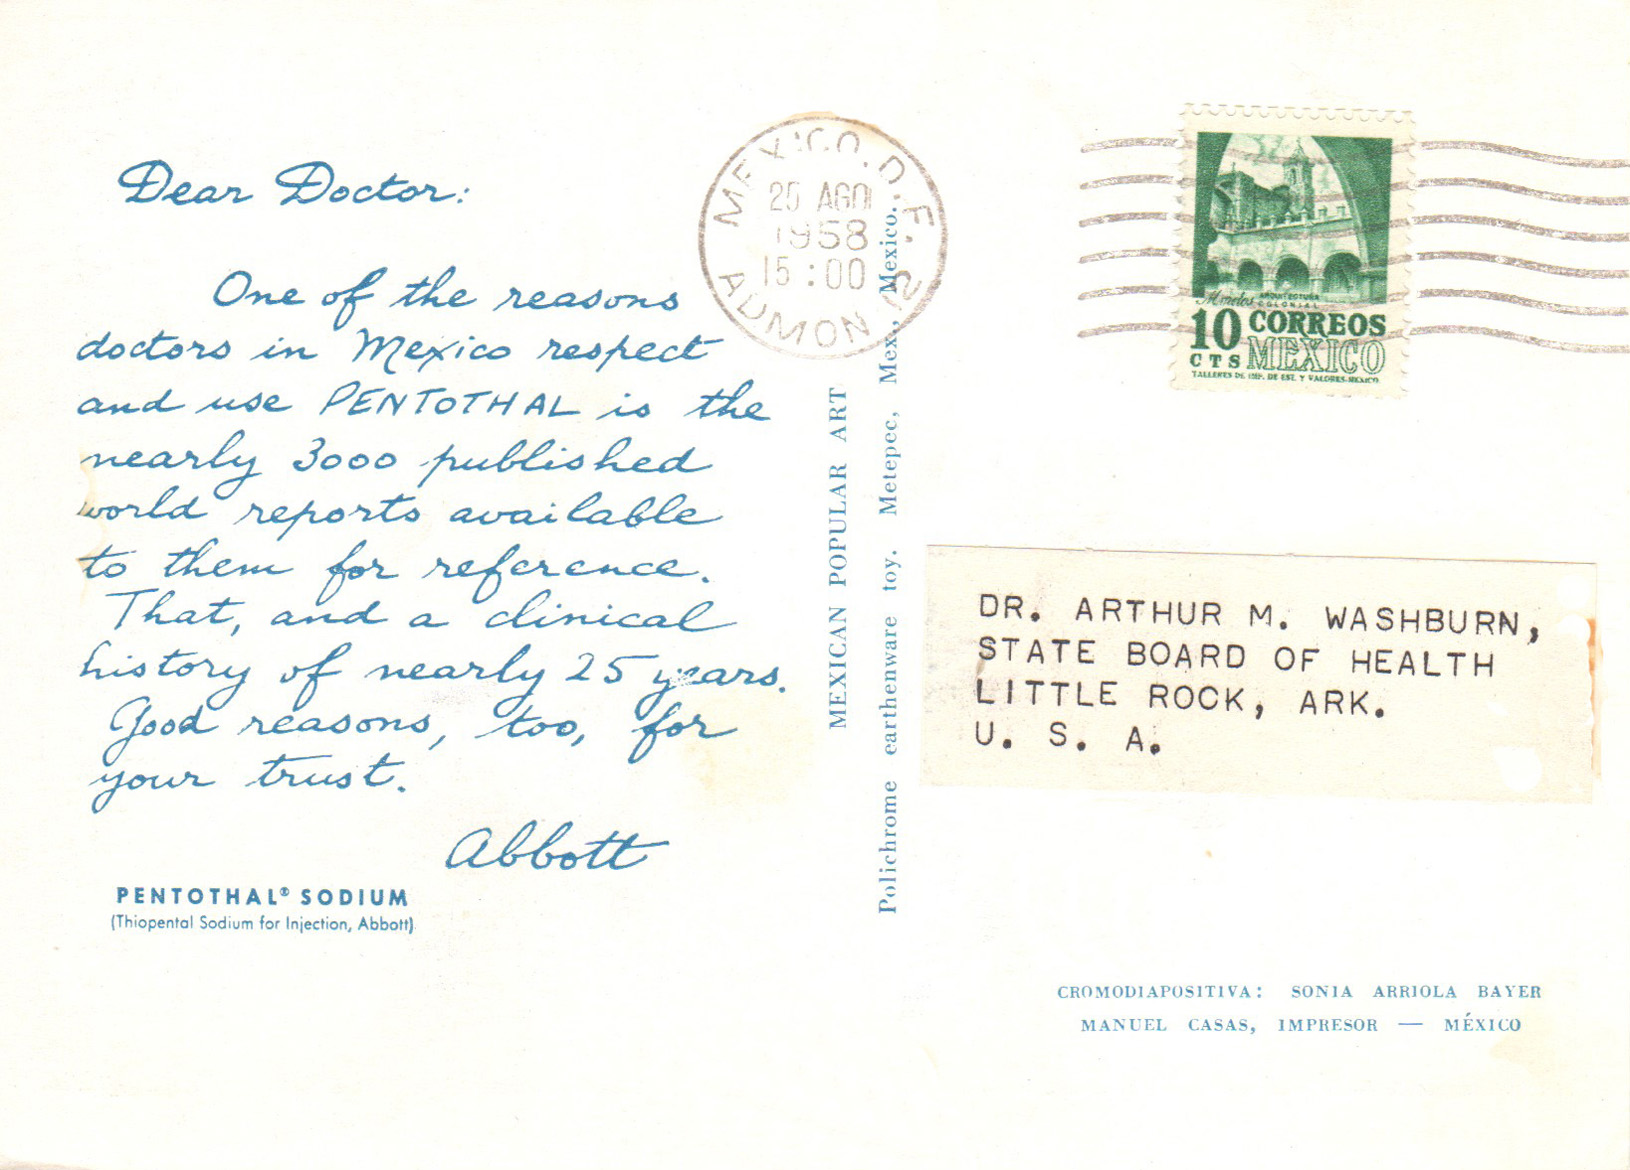 Dear Doctor:
One of the reasons
doctors in Mexico respect
and use PENTOTHAL is the
nearly 3000 published
world reports available
to them for reference.
That, and a clinical
history of nearly 25 years.
Good reasons, too, for
your trust.
Abbott
PENTOTHAL® SODIUM
(Thiopental Sodium for Injection, Abbott)
MEXICAN POPULAR ART
Polichrome earthenware toy. Metepec, Mex., Mexico.
MEXICO. D. F.
AGO
1958
15:00
ADMON
Morelos ARQUITECTURA
COLONIAL
10 CORREOS
CTS MEXICO
TALLERES DE IMP. DE EST. Y VALORES-MEXICO
DR. ARTHUR M. WASHBURN,
STATE BOARD OF HEALTH
LITTLE ROCK, ARK.
U. S. A.
CROMODIAPOSITIVA: SONIA ARRIOLA BAYER
MANUEL CASAS, IMPRESOR — MÉXICO